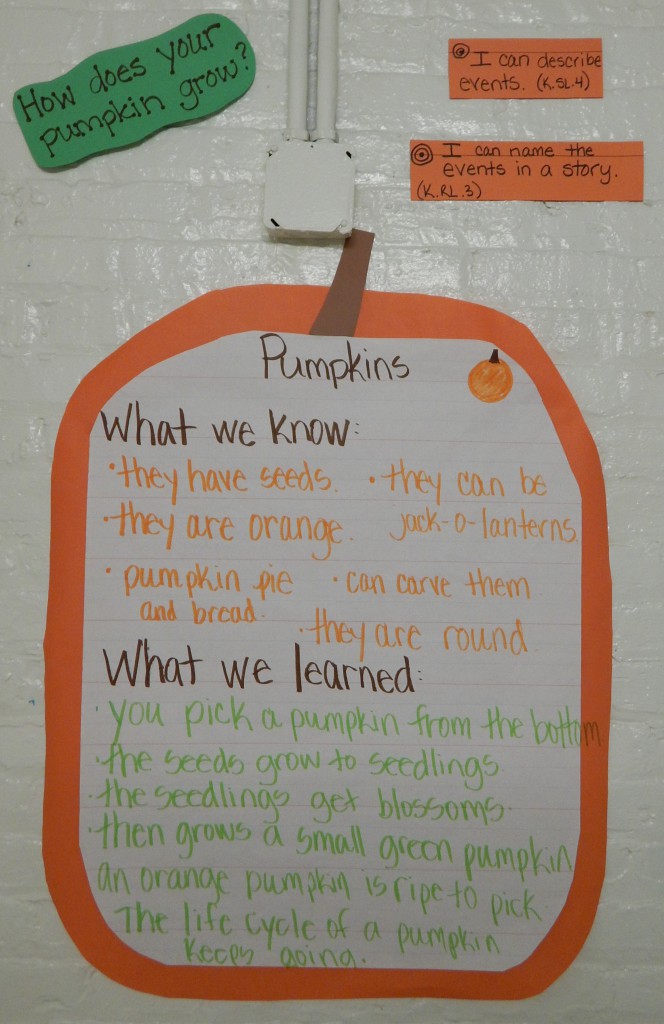 How does your
pumpkin grow?
I can describe
events. (K.SL.4)
I can name the
events in a story.
(K.RL.3)
Pumpkins
What we know:
• they have seeds.
• they can be
jack-o-lanterns.
• they are orange.
• pumpkin pie
and bread.
• can carve them
• they are round
What we learned:
• you pick a pumpkin from the bottom
• the seeds grow to seedlings.
• the seedlings get blossoms.
• then grows a small green pumpkin
an orange pumpkin is ripe to pick.
The life cycle of a pumpkin
keeps going.